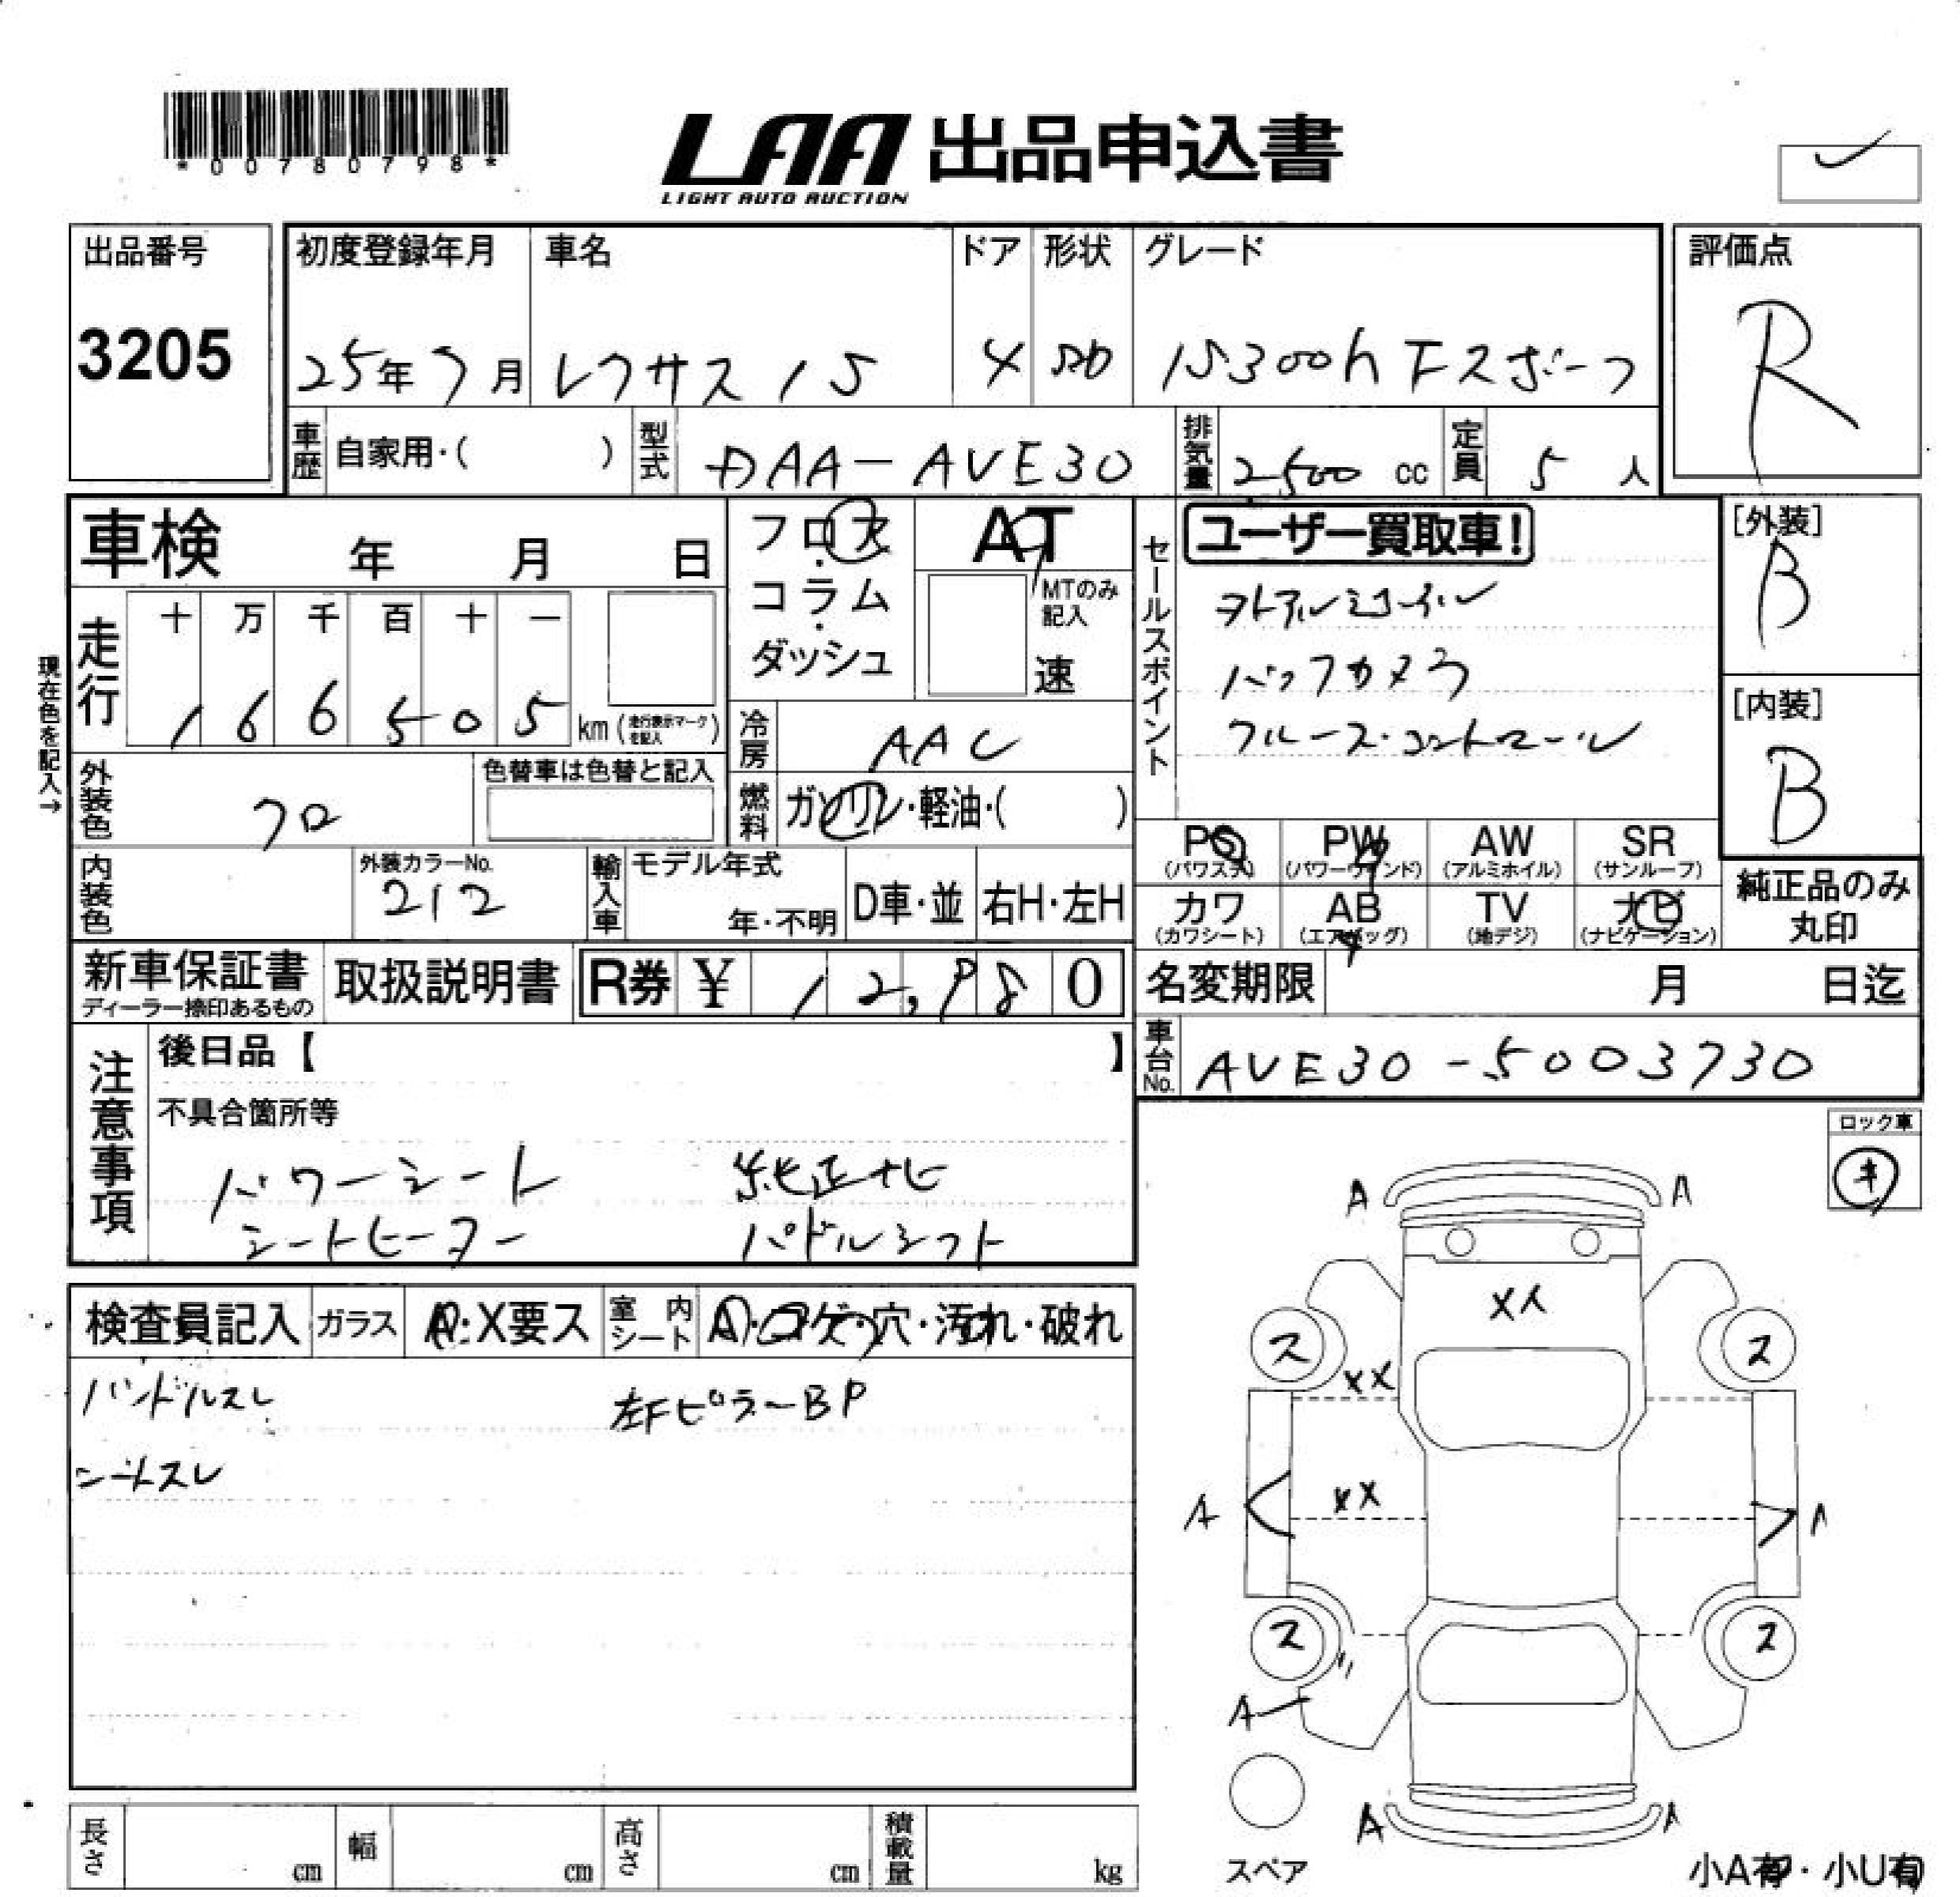 *00780798*
LAA 出品申込書
LIGHT AUTO AUCTION
出品番号
3205
初度登録年月
25年7月
車名
レクサス IS
ドア
4
形状
SD
グレード
IS300h Fスポーツ
評価点
R
車歴
自家用・( )
型式
DAA-AVE30
排気量
2500 cc
定員
5 人
車検 年 月 日
フロア・コラム・ダッシュ
AT
MTのみ記入
速
セールスポイント
ユーザー買取車!
バックカメラ
クルーズ・コントロール
[外装]
B
[内装]
B
現在色を記入→
走行
十 万 千 百 十 一
1 6 6 5 0 5 km (走行表示マークを記入)
冷房
AAC
外装色
クロ
色替車は色替と記入
燃料
ガソリン・軽油・( )
内装色
外装カラーNo.
212
輸入車
モデル年式
年・不明
D車・並
右H・左H
PS
(パワステ)
PW
(パワーウィンド)
AW
(アルミホイル)
SR
(サンルーフ)
カワ
(カワシート)
AB
(エアバッグ)
TV
(地デジ)
ナビ
(ナビゲーション)
純正品のみ
丸印
新車保証書
ディーラー捺印あるもの
取扱説明書
R券 ¥ 12,980
名変期限 月 日迄
車台No.
AVE30-5003730
注意事項
後日品【 】
不具合箇所等
パワーシート 純正ナビ
シートヒーター パドルシフト
ロック車
キ
検査員記入
ガラス
A・X要ス
室内シート
A・コゲ・穴・汚れ・破れ
ハンドルスレ 左FピラーBP
シートスレ
A A
ス ス
XX
XX
A A
ス ス
A
A A
スペア
小A有・小U有
長さ cm
幅 cm
高さ cm
積載量 kg